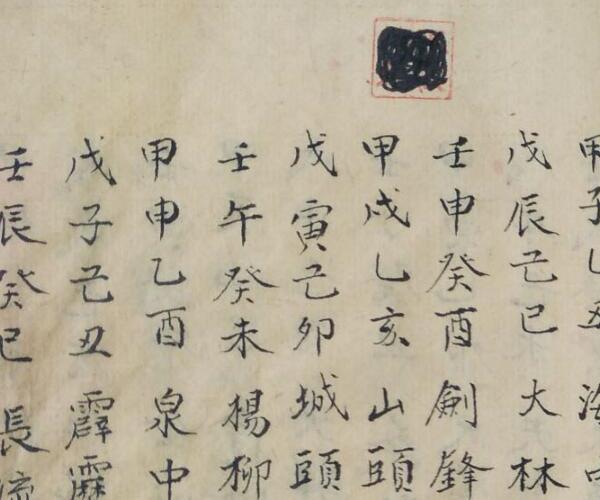 甲子乙丑海中
戊辰己巳大林
壬申癸酉劍鋒
甲戌乙亥山頭
戊寅己卯城頭
壬午癸未楊柳
甲申乙酉泉中
戊子己丑霹靂
壬辰癸巳長流